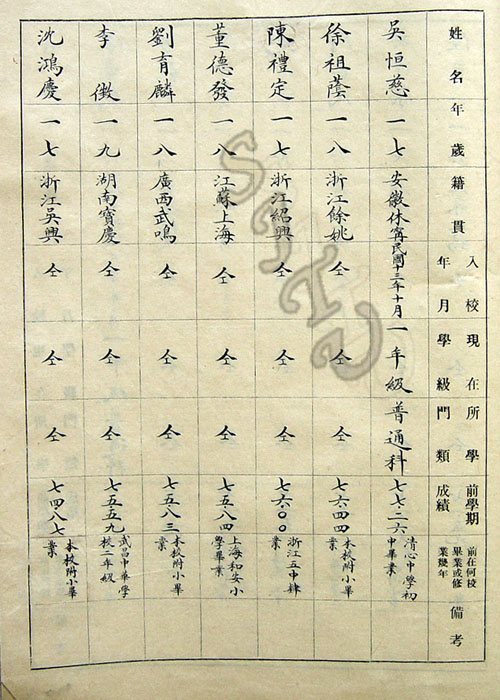 姓名 年歲 籍貫 入校年月 現在學級 所學門類 前學期成績 前在何校畢業或修業幾年 備考
吳恒慈 一七 安徽休寧 民國十三年十月 一年級 普通科 七七·二六 清心中學初中畢業
徐祖蔭 一八 浙江餘姚 仝 仝 仝 七六·四四 本校附小畢業
陳禮定 一七 浙江紹興 仝 仝 仝 七六·〇〇 浙江五中肄業
董德發 一八 江蘇上海 仝 仝 仝 七五·八四 上海和安小學畢業
劉育麟 一八 廣西武鳴 仝 仝 仝 七五·八三 本校附小畢業
李儆 一九 湖南寶慶 仝 仝 仝 七五·五九 武昌中華學校二年級
沈鴻慶 一七 浙江吳興 仝 仝 仝 七四·八七 本校附小畢業
SJTU